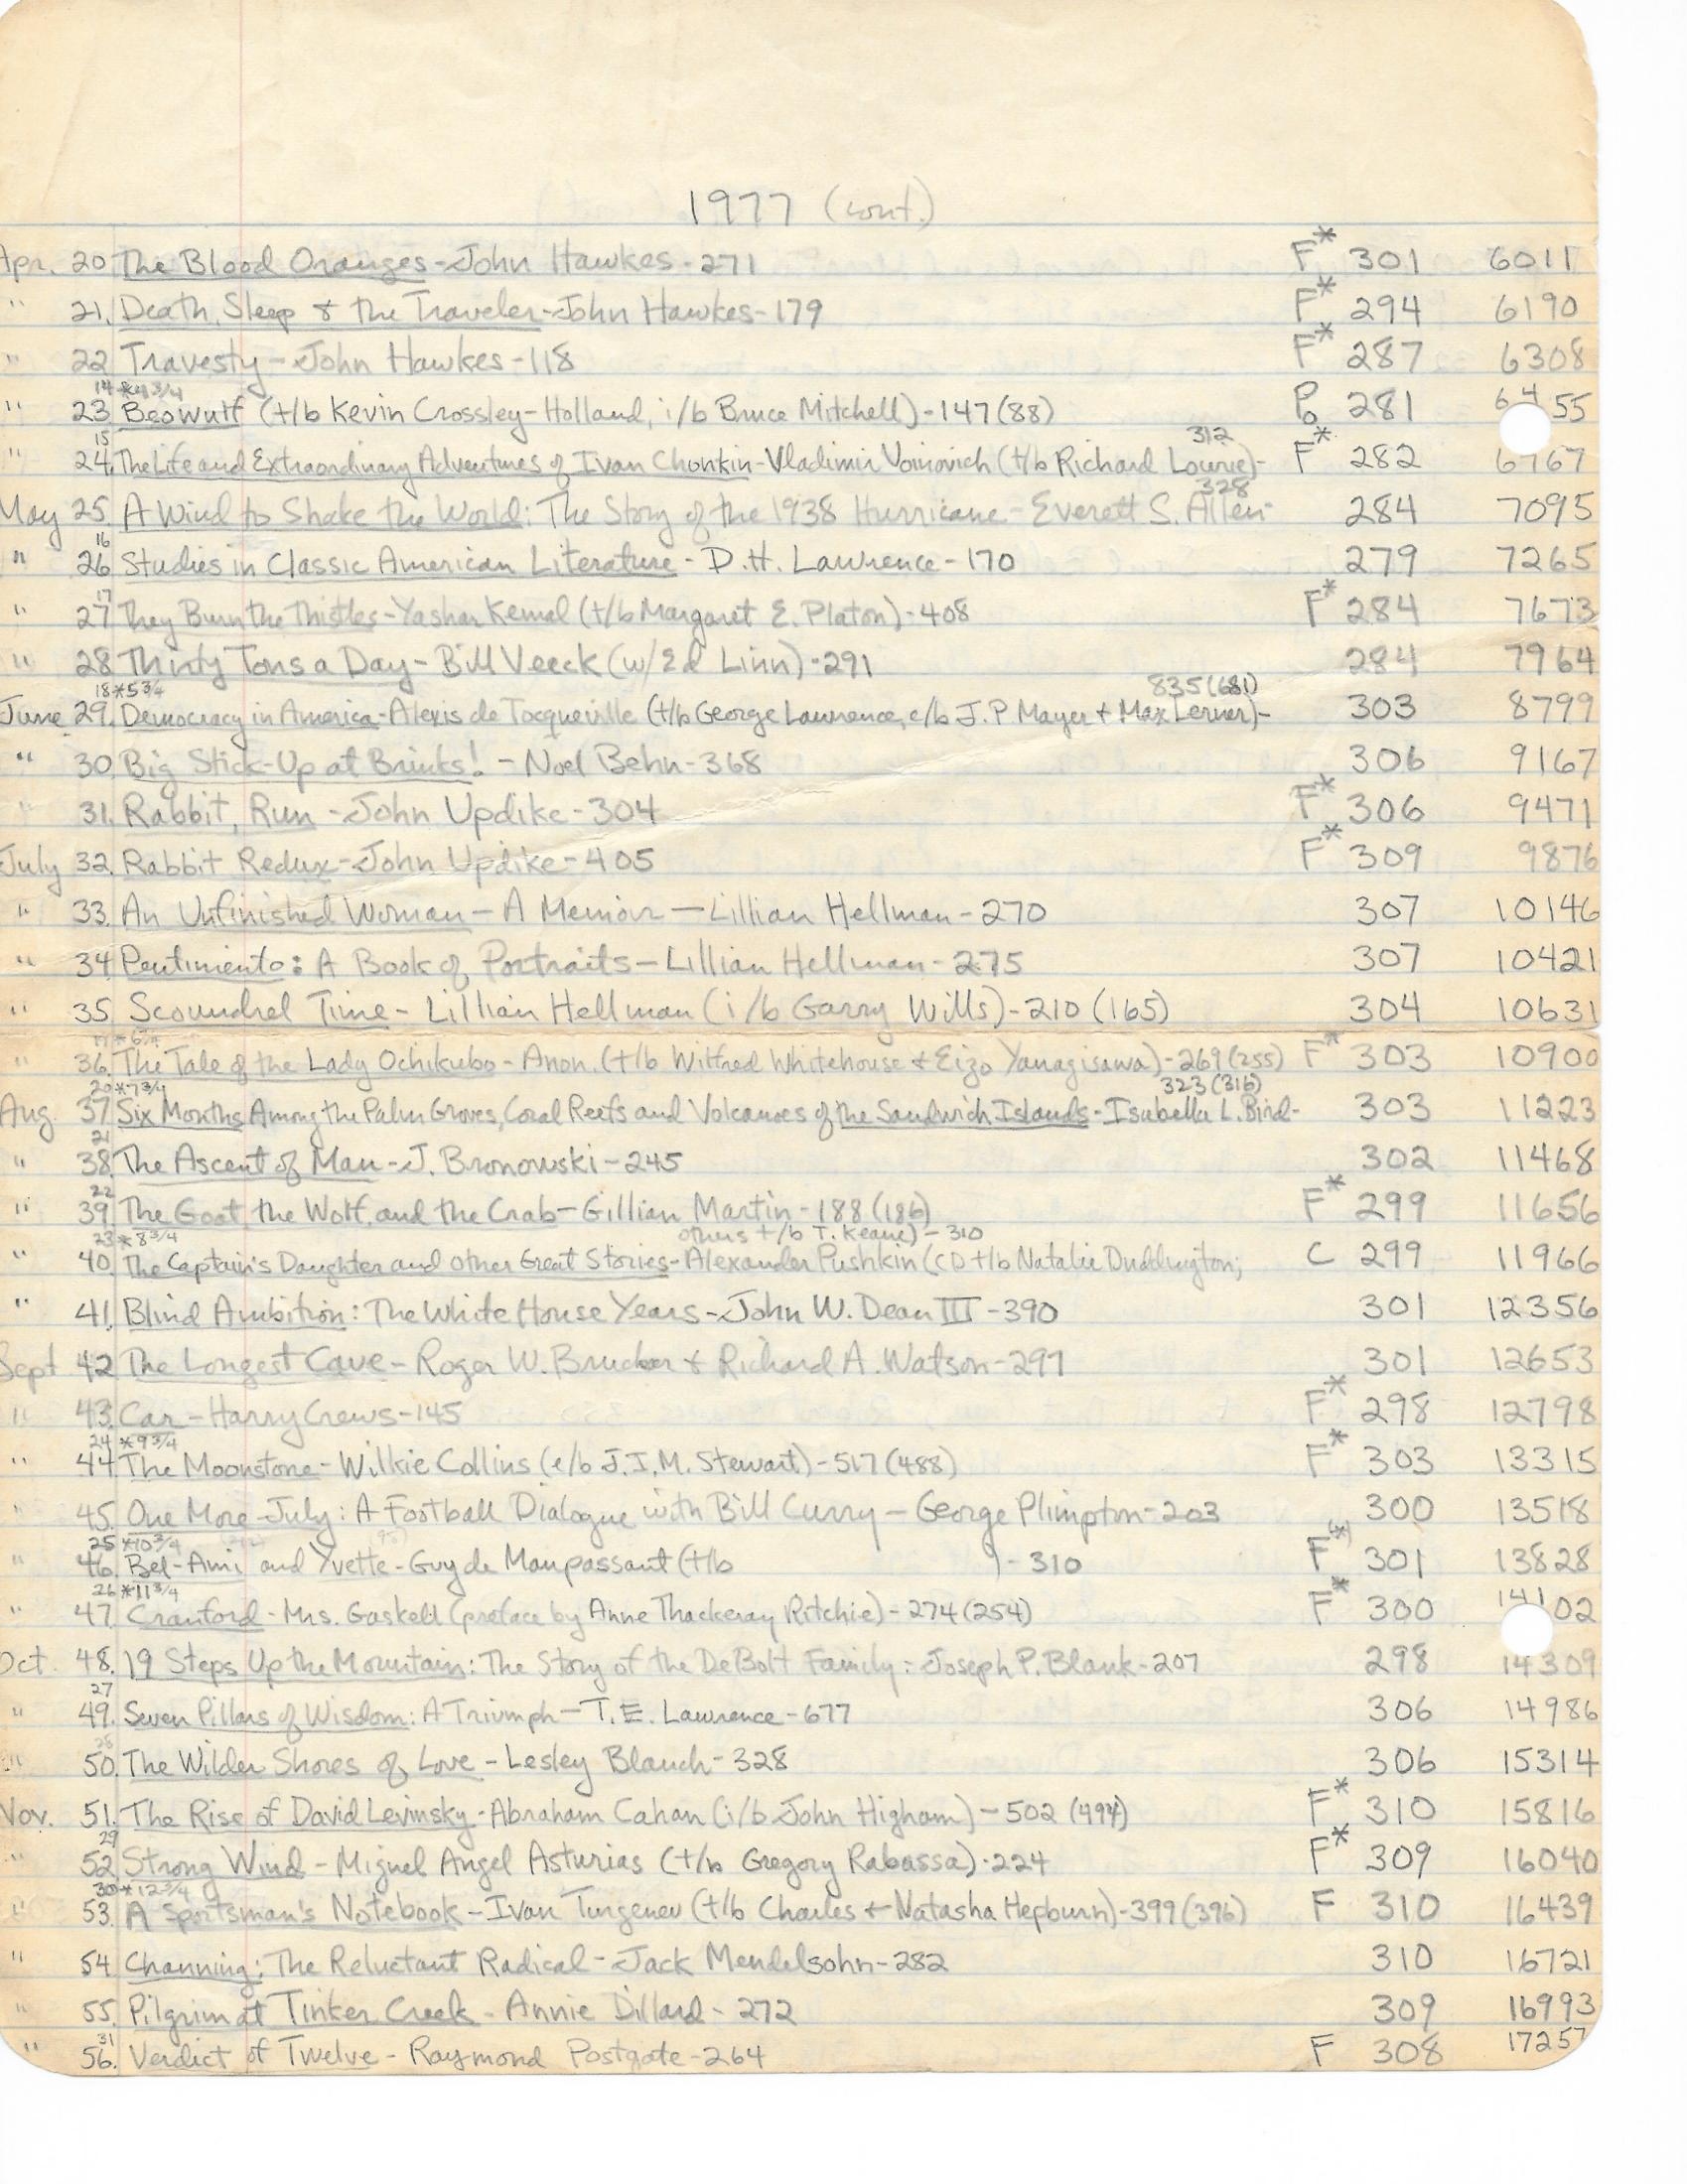 1977 (cont.)
Apr. 20. The Blood Oranges - John Hawkes - 271 F* 301 6011
" 21. Death, Sleep & the Traveler - John Hawkes - 179 F* 294 6190
" 22 Travesty - John Hawkes - 118 F* 287 6308
14 *4 3/4
" 23. Beowulf (t/b Kevin Crossley-Holland, i/b Bruce Mitchell) - 147 (88) Po 281 6455
15 312
" 24. The Life and Extraordinary Adventures of Ivan Chonkin - Vladimir Voinovich (t/b Richard Lourie) - F* 282 6767
328
May 25. A Wind to Shake the World: The Story of the 1938 Hurricane - Everett S. Allen - 284 7095
16
" 26. Studies in Classic American Literature - D.H. Lawrence - 170 279 7265
17
" 27. They Burn the Thistles - Yashar Kemal (t/b Margaret E. Platon) - 408 F* 284 7673
" 28. Thirty Tons a Day - Bill Veeck (w/Ed Linn) - 291 284 7964
18 *5 3/4 835 (681)
June 29. Democracy in America - Alexis de Tocqueville (t/b George Lawrence, e/b J.P Mayer + Max Lerner) - 303 8799
" 30. Big Stick-Up at Brinks! - Noel Behn - 368 306 9167
" 31. Rabbit, Run - John Updike - 304 F* 306 9471
July 32. Rabbit Redux - John Updike - 405 F* 309 9876
" 33. An Unfinished Woman - A Memoir - Lillian Hellman - 270 307 10146
" 34. Pentimento: A Book of Portraits - Lillian Hellman - 275 307 10421
" 35. Scoundrel Time - Lillian Hellman (i/b Garry Wills) - 210 (165) 304 10631
19 *6 3/4
" 36. The Tale of the Lady Ochikubo - Anon. (t/b Wilfred Whitehouse + Eizo Yanagisawa) - 269 (255) F* 303 10900
20 *7 3/4 323 (316)
Aug. 37. Six Months Among the Palm Groves, Coral Reefs and Volcanoes of the Sandwich Islands - Isabella L. Bird - 303 11223
21
" 38. The Ascent of Man - J. Bronowski - 245 302 11468
22
" 39. The Goat, the Wolf, and the Crab - Gillian Martin - 188 (186) F* 299 11656
23 *8 3/4 others t/b T. Keane) - 310
" 40. The Captain's Daughter and Other Great Stories - Alexander Pushkin (CD t/b Natalie Duddington; C 299 11966
" 41. Blind Ambition: The White House Years - John W. Dean III - 390 301 12356
Sept 42. The Longest Cave - Roger W. Brucker + Richard A. Watson - 297 301 12653
" 43. Car - Harry Crews - 145 F* 298 12798
24 *9 3/4
" 44. The Moonstone - Wilkie Collins (e/b J.I.M. Stewart) - 517 (488) F* 303 13315
" 45. One More July: A Football Dialogue with Bill Curry - George Plimpton - 203 300 13518
25 *10 3/4
" 46. Bel-Ami and Yvette - Guy de Maupassant (t/b ) - 310 F(*) 301 13828
26 *11 3/4
" 47. Cranford - Mrs. Gaskell (preface by Anne Thackeray Ritchie) - 274 (254) F* 300 14102
Oct. 48. 19 Steps Up the Mountain: The Story of the DeBolt Family: Joseph P. Blank - 207 298 14309
27
" 49. Seven Pillars of Wisdom: A Triumph - T.E. Lawrence - 677 306 14986
28
" 50. The Wilder Shores of Love - Lesley Blanch - 328 306 15314
Nov. 51. The Rise of David Levinsky - Abraham Cahan (i/b John Higham) - 502 (494) F* 310 15816
29
" 52. Strong Wind - Miguel Angel Asturias (t/b Gregory Rabassa) - 224 F* 309 16040
30 *12 3/4
" 53. A Sportsman's Notebook - Ivan Turgenev (t/b Charles + Natasha Hepburn) - 399 (396) F 310 16439
" 54. Channing: The Reluctant Radical - Jack Mendelsohn - 282 310 16721
" 55. Pilgrim at Tinker Creek - Annie Dillard - 272 309 16993
31
" 56. Verdict of Twelve - Raymond Postgate - 264 F 308 17257